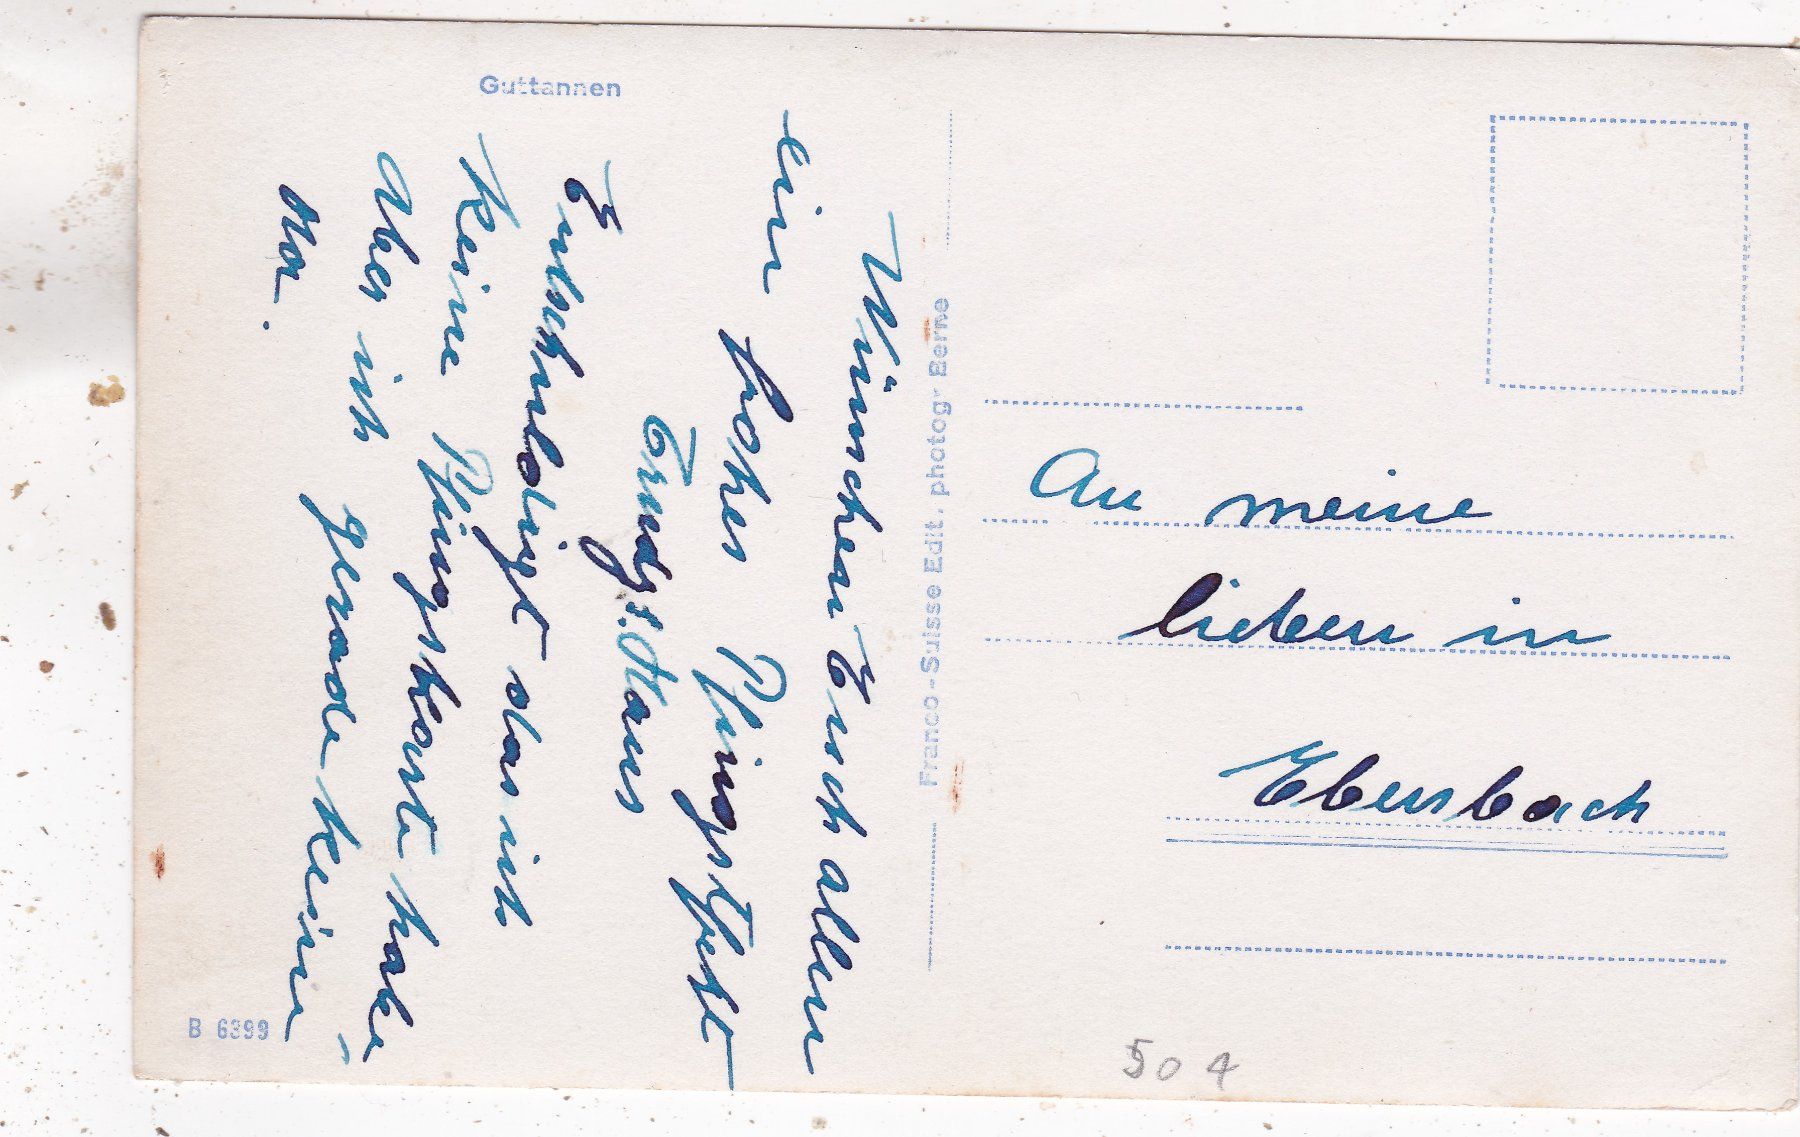 Guttannen
Wünschen Euch allen
ein frohes Pfingstfest
Hans
Entschuldigt das ich
keine Pfingstkarte habe
Aber ich gerade keine
da.
B 6399
Franco-Suisse Edit. photogr Berne
An meine
lieben in
Ebersbach
504